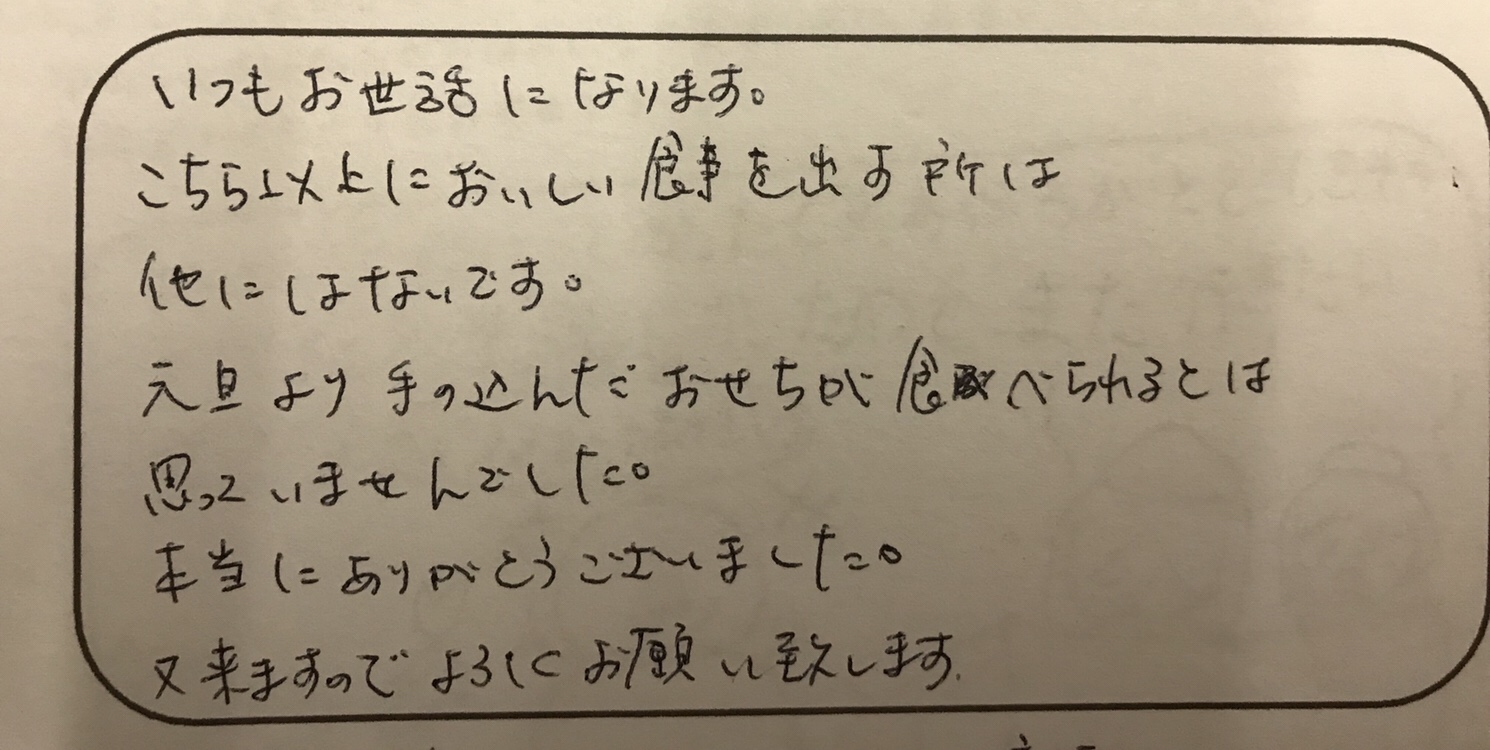 いつもお世話になります。
こちら以上においしい食事を出す所は
他にはないです。
元旦より手の込んだおせちが食べられるとは
思っていませんでした。
本当にありがとうございました。
又来ますのでよろしくお願い致します.